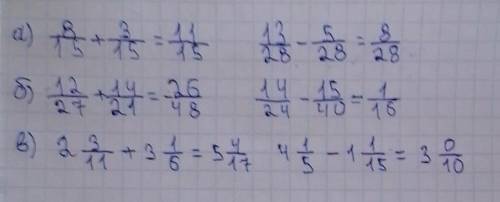 а) 8/15 + 3/15 = 11/15 13/28 - 5/28 = 8/28
б) 12/27 + 14/21 = 26/48 14/24 - 15/40 = 1/16
в) 2 3/11 + 3 1/6 = 5 4/17 4 1/5 - 1 1/15 = 3 0/10